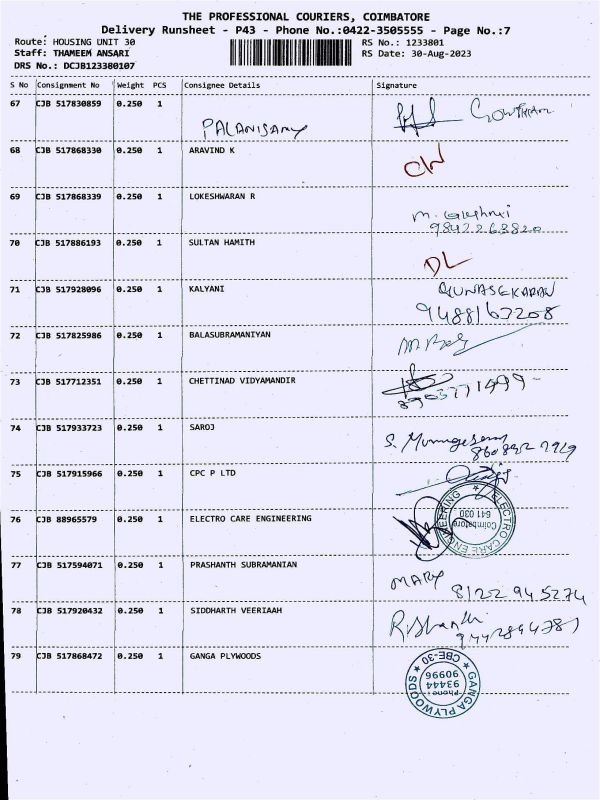 THE PROFESSIONAL COURIERS, COIMBATORE
Delivery Runsheet - P43 - Phone No.:0422-3505555 - Page No.:7
Route: HOUSING UNIT 30 RS No.: 1233801
Staff: THAMEEM ANSARI RS Date: 30-Aug-2023
DRS No.: DCJB123380107
S No Consignment No Weight PCS Consignee Details Signature
67 CJB 517830859 0.250 1
PALANISAMY GOWTHAM
68 CJB 517868330 0.250 1 ARAVIND K
69 CJB 517868339 0.250 1 LOKESHWARAN R
9842268820
70 CJB 517886193 0.250 1 SULTAN HAMITH DL
71 CJB 517928096 0.250 1 KALYANI GUNASEKARAN
9488163208
72 CJB 517825986 0.250 1 BALASUBRAMANIYAN
73 CJB 517712351 0.250 1 CHETTINAD VIDYAMANDIR
74 CJB 517933723 0.250 1 SAROJ S. Murugesan
75 CJB 517915966 0.250 1 CPC P LTD
76 CJB 88965579 0.250 1 ELECTRO CARE ENGINEERING
ELECTRO CARE ENGINEERING
Coimbatore
641 030
77 CJB 517594071 0.250 1 PRASHANTH SUBRAMANIAN MARY
8122 945274
78 CJB 517920432 0.250 1 SIDDHARTH VEERIAAH
79 CJB 517868472 0.250 1 GANGA PLYWOODS
GANGA PLYWOODS
CBE-30
Phone:
93444
90996